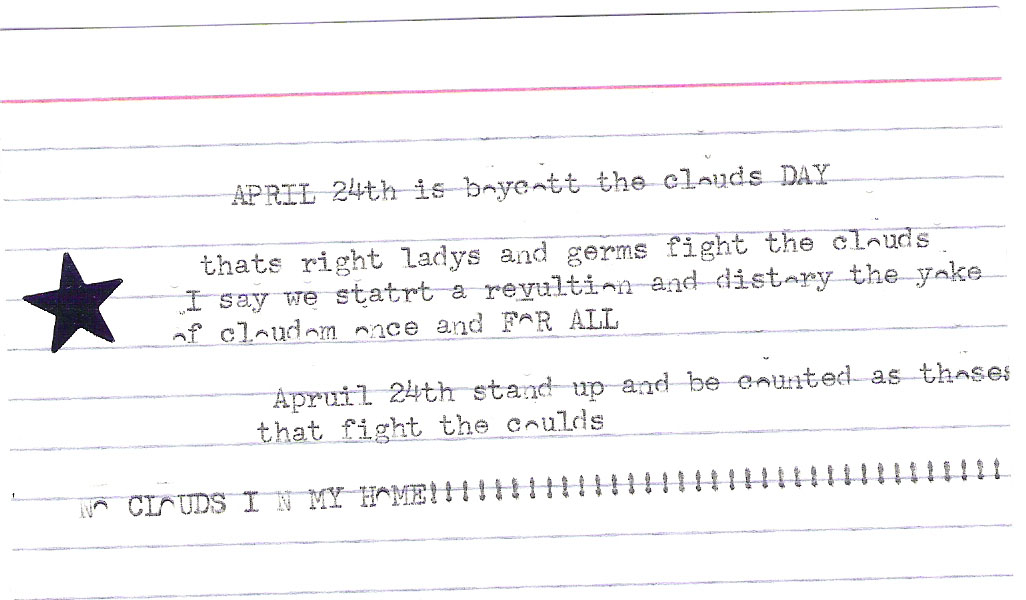 APRIL 24th is boycott the clouds DAY
thats right ladys and germs fight the clouds.
I say we statrt a revultion and distory the yoke
of cloudom once and FoR ALL
Apruil 24th stand up and be counted as thoses
that fight the coulds
No CLoUDS I N MY HoME!!!!!!!!!!!!!!!!!!!!!!!!!!!!!!!!!!!!!